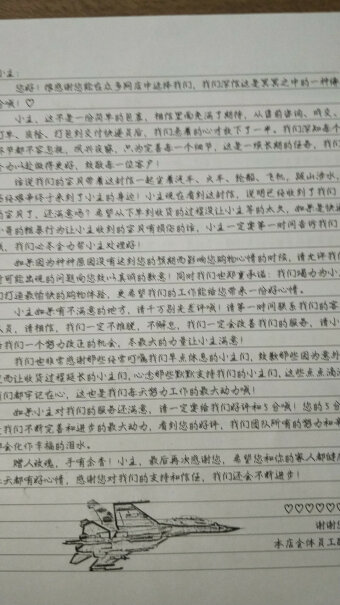 小主:
您好!很感谢您能在众多网店中选择我们,我们深信这是冥冥之中的一种缘
分哦!♡
小主,这不是一份简单的包裹,相信里面充满了期待,从售前咨询、成交、
打单、质检、打包到交付快递员后,我们悬着的心才放下了一半。我们深知每个
环节都不容忽视,
力以赴做得更好,致敬每一位客户!
话说我们的宝贝带着这封信一起坐着汽车、火车、轮船、飞机,跋山涉水,
历经艰辛终于来到了小主的身边!小主现在看到这封信,说明已经收到了我们
的宝贝了,还满意吗?希望从下单到收货的过程没让小主等的太久,如果是快递
小哥的粗暴行为让小主收到的宝贝有损伤的话,小主一定要第一时间告诉我们
哦,我们必尽全力帮小主处理好!
如果因为种种原因没有达到您的预期而影响您购物心情的时候,请允许我们
对可能出现的问题向您致以真诚的歉意!同时我们也郑重承诺:我们竭力为小主
们打造最愉快的购物体验,更希望我们的工作能给您带来一份好心情。
小主如果有不满意的地方,请千万别先差评哦!请第一时间联系我们的客
人员,请相信,我们一定不推脱,不懈怠,我们一定会改善我们的服务,请小
给我们一个努力改正的机会,尽最大的力量让小主满意!
我们也非常感谢那些经常叮嘱我们早点休息的小主们,致歉那些因为意外
况而让收货过程延长的小主们,心念那些默默支持我们的小主们,这些点点滴滴
我们都牢记在心,这也是我们每天努力工作的最大动力哦!
如果小主对我们的服务还满意,请一定要给我们好评和5分哦!您的5分
是我们不断完善和进步的最大动力,看到您的好评,我们团队所有的努力和
都会化作幸福的泪水。
赠人玫瑰,手有余香!小主,最后再次感谢您,希望您和你的家人都健康
天天都有好心情,感谢您对我们的支持和信任,我们还会不断进步!
♡♡♡♡♡♡
谢谢
本店全体员工